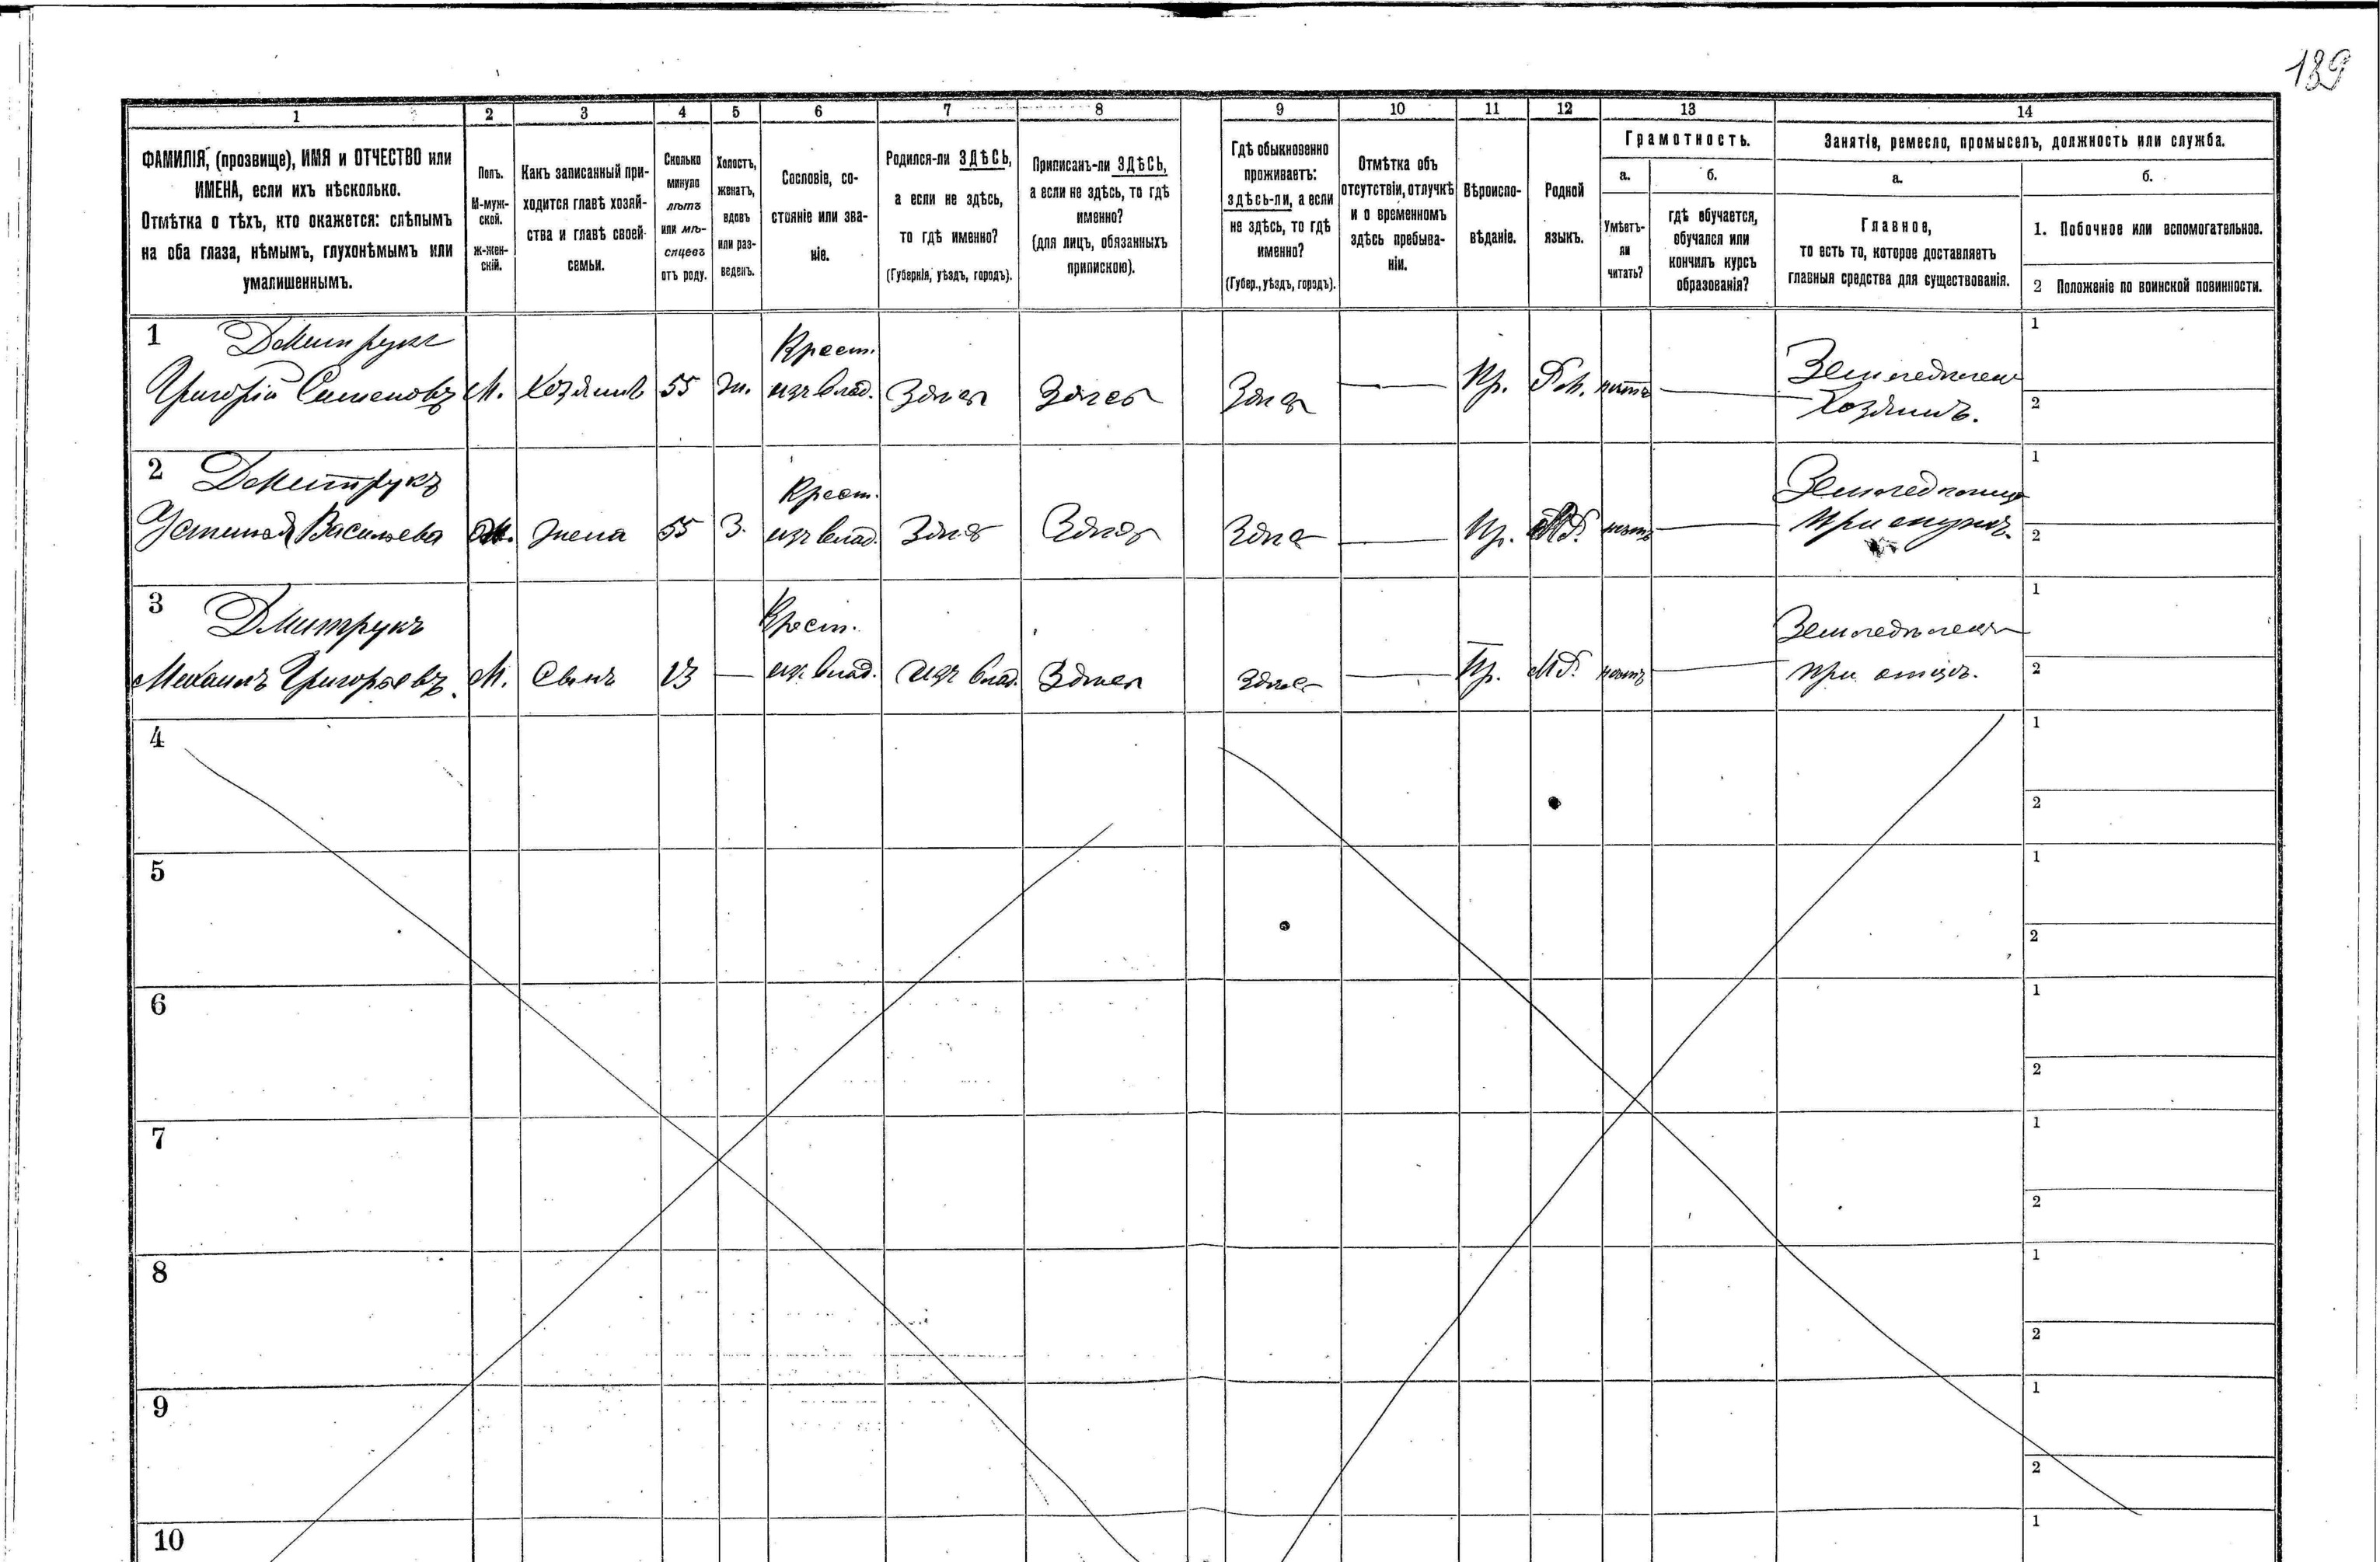 189
1 2 3 4 5 6 7 8 9 10 11 12 13 14
ФАМИЛІЯ, (прозвище), ИМЯ и ОТЧЕСТВО или
ИМЕНА, если ихъ нѣсколько.
Отмѣтка о тѣхъ, кто окажется: слѣпымъ
на оба глаза, нѣмымъ, глухонѣмымъ или
умалишеннымъ.
Полъ.
М-муж-
ской.
Ж-жен-
скій.
Какъ записанный при-
ходится главѣ хозяй-
ства и главѣ своей
семьи.
Сколько
минуло
лѣтъ
или мѣ-
сяцевъ
отъ роду.
Холостъ,
женатъ,
вдовъ
или раз-
веденъ.
Сословіе, со-
стояніе или зва-
ніе.
Родился-ли ЗДѢСЬ,
а если не здѣсь,
то гдѣ именно?
(Губернія, уѣздъ, городъ).
Приписанъ-ли ЗДѢСЬ,
а если не здѣсь, то гдѣ
именно?
(для лицъ, обязанныхъ
припискою).
Гдѣ обыкновенно
проживаетъ:
здѣсь-ли, а если
не здѣсь, то гдѣ
именно?
(Губер., уѣздъ, городъ).
Отмѣтка объ
отсутствіи, отлучкѣ
и о временномъ
здѣсь пребыва-
ніи.
Вѣроиспо-
вѣданіе.
Родной
языкъ.
Грамотность.
а.
Умѣетъ-
ли
читать?
б.
гдѣ обучается,
обучался или
кончилъ курсъ
образованія?
Занятіе, ремесло, промыселъ, должность или служба.
а.
Главное,
то есть то, которое доставляетъ
главныя средства для существованія.
б.
1. Побочное или вспомогательное.
2 Положеніе по воинской повинности.
1 Дмитрукъ Крест. 1
Григорій Семеновъ М. Хозяинъ 55 ж. изъ влад. Здѣсь Здѣсь Здѣсь — Пр. нѣтъ — Земледѣлецъ 2
Хозяинъ.
2 Дмитрукъ Крест. Земледѣлица 1
Васильева Ж. жена 55 З. изъ влад. Здѣсь Здѣсь Здѣсь — Пр. нѣтъ — при мужѣ. 2
3 Дмитрукъ Крест. Земледѣлецъ 1
Михаилъ Григорьевъ. М. Сынъ 13 — из влад. изъ влад. Здѣсь здѣсь — Пр. нѣтъ — при отцѣ. 2
4 1
2
5 1
2
6 1
2
7 1
2
8 1
2
9 1
2
10 1